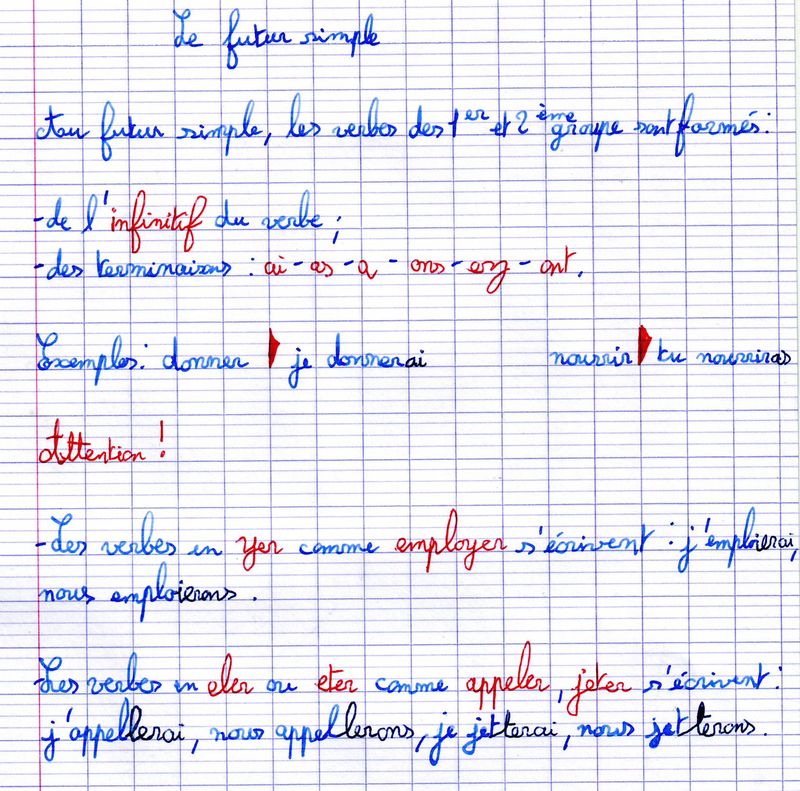 Le futur simple
Au futur simple, les verbes des 1er et 2ème groupe sont formés:
-de l'infinitif du verbe ;
-des terminaisons : ai - as - a - ons - ez - ont.
Exemples: donner je donnerai nourrir tu nourriras
Attention !
-Les verbes en yer comme employer s'écrivent : j'emploierai,
nous emploierons .
-Les verbes en eler ou eter comme appeler, jeter s'écrivent:
j'appellerai, nous appellerons, je jetterai, nous jetterons.